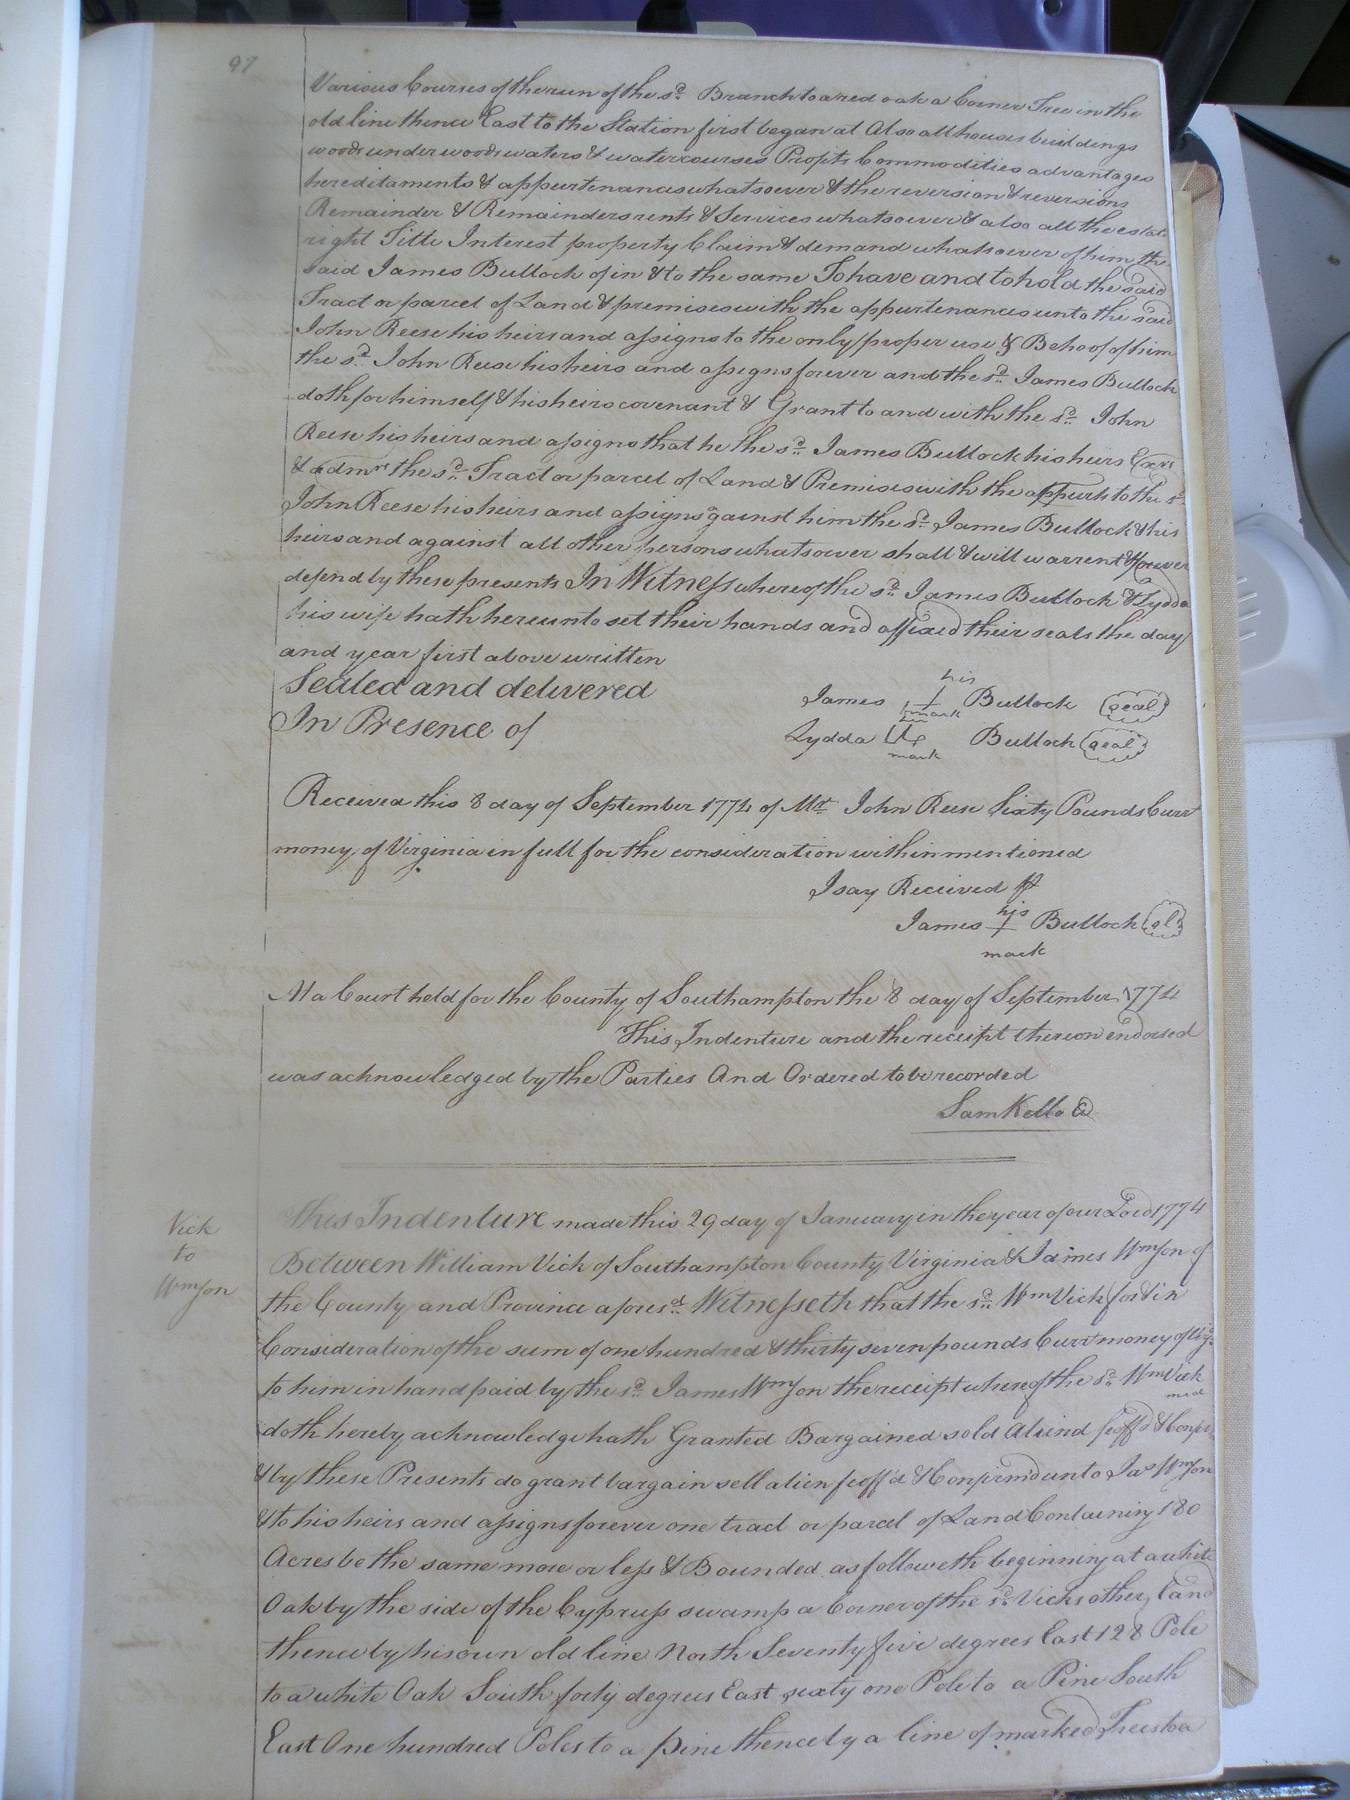 97
Various Courses of the run of the sd. Branch to a red oak a Corner Tree in the
old line thence East to the Station first began at Also all houses buildings
woods under woods waters & watercourses Profits Commodities advantages
hereditaments & appurtenances whatsoever & the reversion & reversions
Remainder & Remainders rents & Services whatsoever & also all the estate
right Title Interest property Claim & demand whatsoever of him the
said James Bullock of in & to the same To have and to hold the said
Tract or parcel of Land & premises with the appurtenances unto the said
John Reese his heirs and assigns to the only proper use & Behoof of him
the sd. John Reese his heirs and assigns forever and the sd. James Bullock
doth for himself & his heirs covenant & Grant to and with the sd. John
Reese his heirs and assigns that he the sd. James Bullock his heirs Exrs
& admrs the sd. Tract or parcel of Land & Premises with the appurts to the sd
John Reese his heirs and assigns against him the sd. James Bullock & his
heirs and against all other persons whatsoever shall & will warrent & forever
defend by these presents In Witness whereof the sd. James Bullock & Lydda
his wife hath hereunto set their hands and affixed their seals the day
and year first above written
Sealed and delivered
In Presence of
his
James Bullock seal
mark
Lydda Bullock seal
mark
Received this 8 day of September 1774 of Mr. John Reese Sixty Pounds Curr
money of Virginia in full for the consideration within mentioned
I say Received
his
James Bullock
mark
At a Court held for the County of Southampton the 8 day of September 1774
This Indenture and the receipt thereon endorsed
was acknowledged by the Parties And Ordered to be recorded
Sam Kello
Vick
to
Wmson
This Indenture made this 29 day of January in the year of our Lord 1774
Between William Vick of Southampton County Virginia & James Wmson of
the County and Province aforesd. Witnesseth that the sd. Wm Vick for & in
Consideration of the sum of one hundred & thirty seven pounds Curr money of Virga
to him in hand paid by the sd. James Wmson the receipt whereof the sd. Wm Vick
doth hereby acknowledge hath Granted Bargained sold Aliend feoff'd & Confirmed
& by these Presents do grant bargain sell alien feoff'd & Confirmd unto Jas Wmson
& to his heirs and assigns forever one tract or parcel of Land Containing 180
Acres be the same more or less & Bounded as followeth beginning at a white
Oak by the side of the Cypruss swamp a Corner of the sd. Vicks other land
thence by his own old line North Seventy five degrees East 128 Pole
to a white Oak South forty degrees East sixty one Pole to a Pine South
East One hundred Poles to a pine thence by a line of marked Trees to a